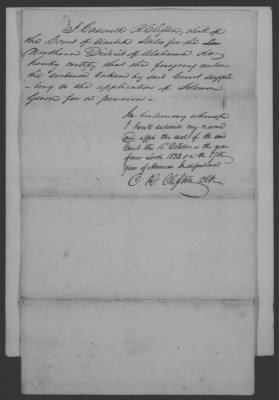 I Caswell R Clifton, Clerk of
the Court of United States for the
Northern District of Alabama do
hereby certify that the foregoing contains
the testimony taken by said Court supple
-tory to the application of Solomon
Green for a pension -
In testimony whereof
I hereto subscribe my name
and affix the seal of the said
Court the 15 October in the year
of our Lord 1833 & in the 57th
year of American Independence
C R Clifton clk